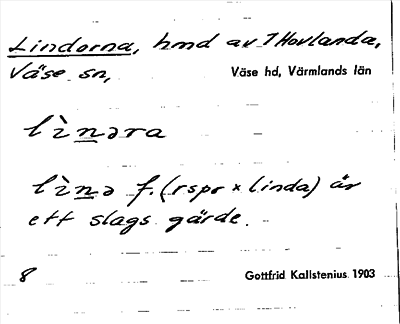 Lindorna, hmd av 7 Hovlanda,
Väse sn, Väse hd, Värmlands län
lìnəra
lìnə f. (rspr × linda) är
ett slags gärde.
8 Gottfrid Kallstenius 1903